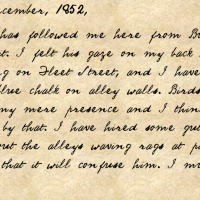 cember, 1852,
has followed me here from B
t. I felt his gaze on my back
g on Fleet Street, and I have
blue chalk on alley walls. Birds
my mere presence and I thin
by that. I have hired some gu
out the alleys waving rags at p
that it will confuse him. I m